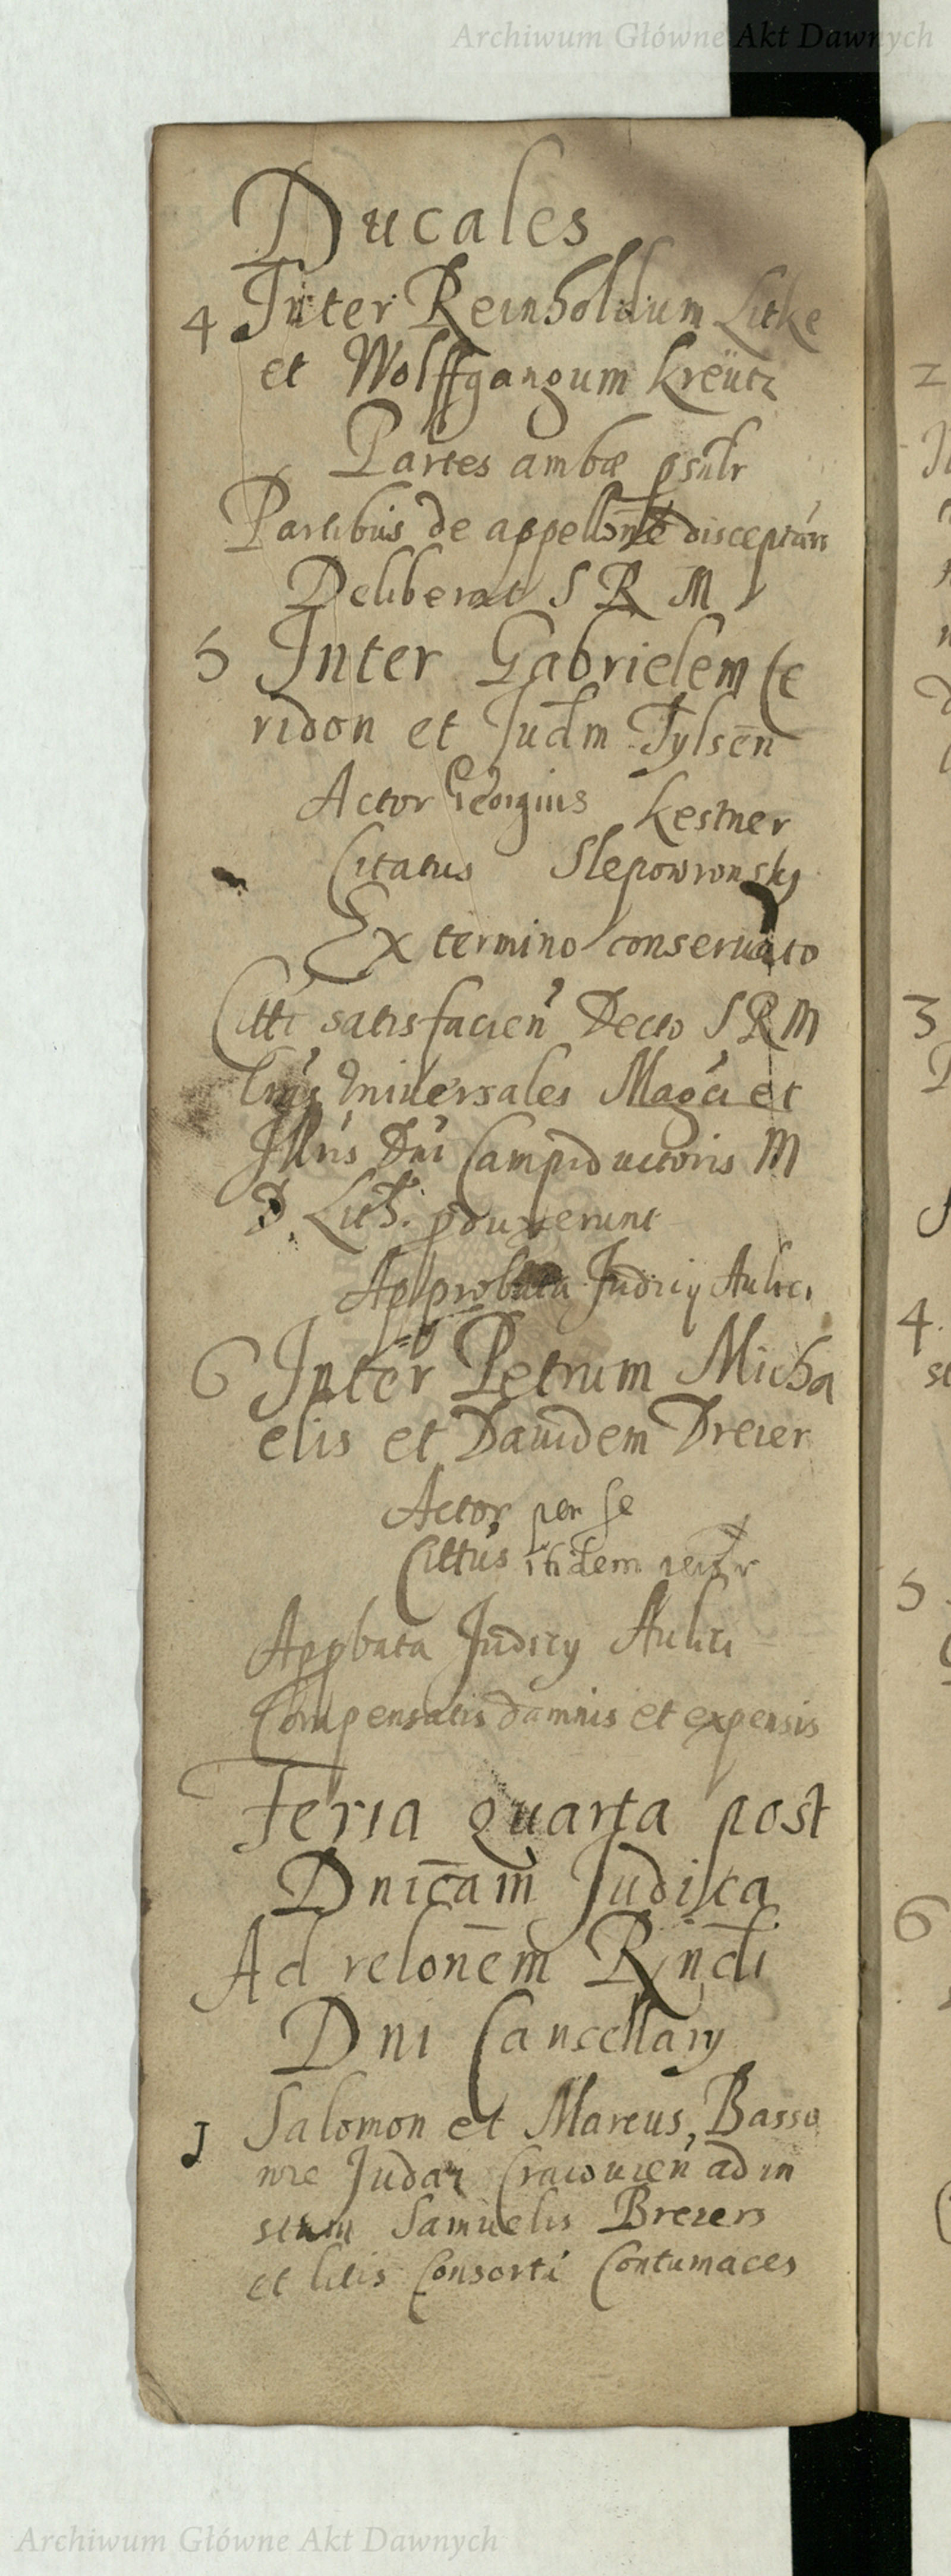 Archiwum Główne Akt Dawnych
Ducales
4 Inter Reinholdum Litke
et Wolffgangum Kreütz
Partes ambæ psntr
Partibus de appellõne disceptan
Deliberat S R M
5 Inter Gabrielem Ce
ridon et Judm Tylsen
Actor Georgius Kestner
Citatus Slepowronsky
Ex termino conseruato
Citti satisfacien Decto S R M
Lras Vniuersales Magci et
Illris Dni Campiductoris M
D Lith. pduxerunt
Approbata Judicij Aulici
6 Inter Petrum Micha
elis et Dauidem Dreier
Actor per se
Cittus itidem
Appbata Judicij Aulici
Compensatis damnis et expensis
Feria quarta post
Dnicam Judica
Ad relonem Rndi
Dni Cancellarij
1 Salomon et Marcus, Basso
Judæi Cracouien ad in
stam Samuelis Breiers
et litis Consorti Contumaces
2
3
4
5
6
Archiwum Główne Akt Dawnych